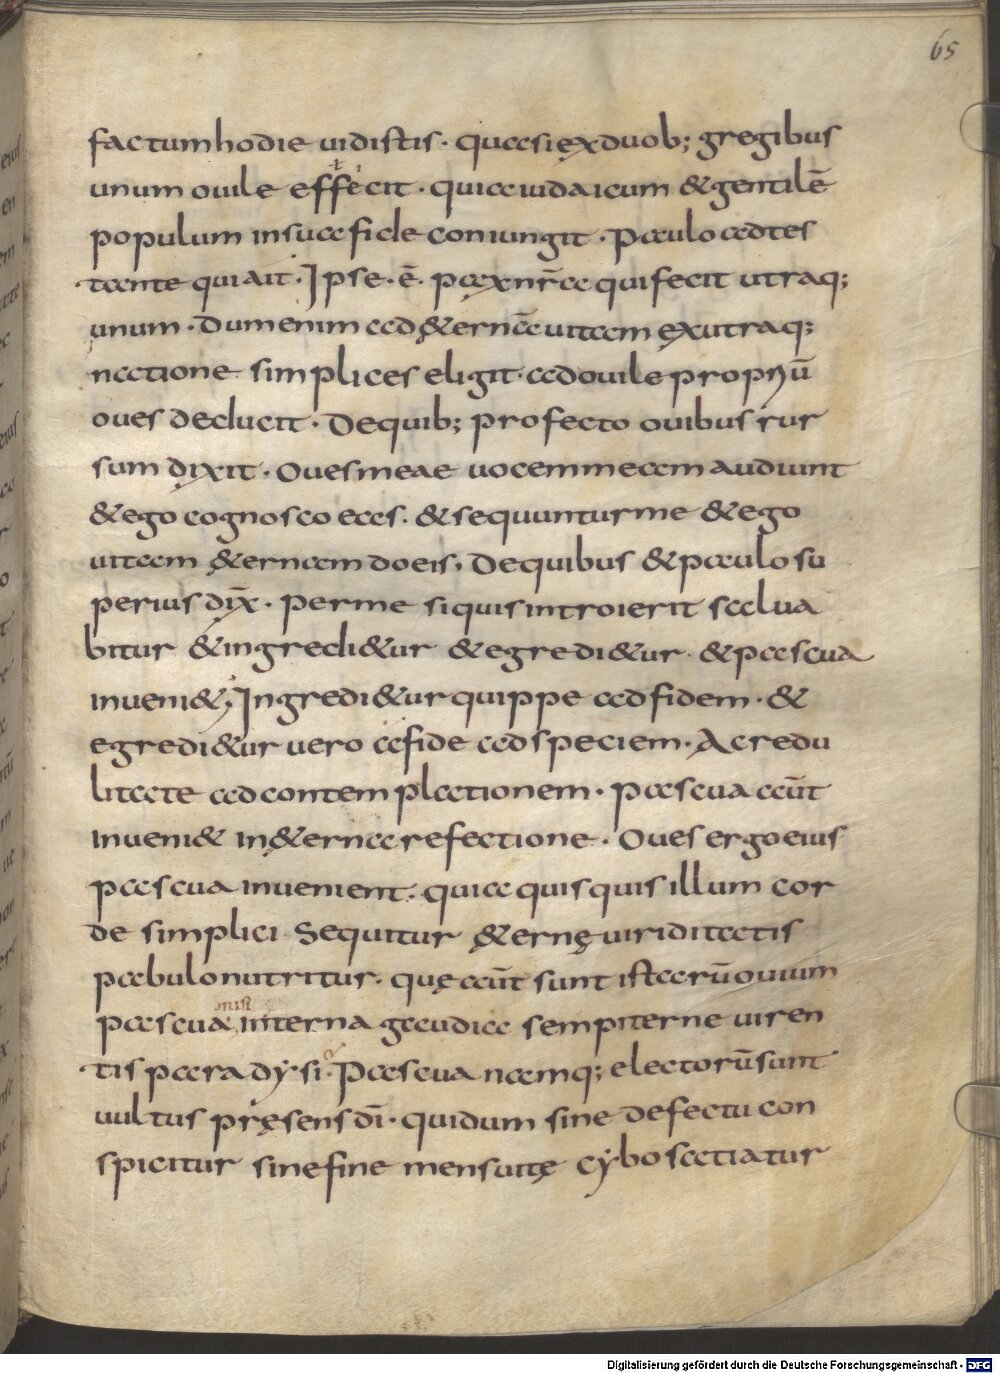 65
factum hodie uidistis· quasi ex duob; gregibus
unum ouile effecit· quia iudaicum & gentilē
populum in sua fide coniungit· Paulo adtes
tante qui ait· Ipse·ē· pax nr̄a qui fecit utraq;
unum· Dum enim ad &ernā uitam ex utraq;
natione simplices eligit· ad ouile propriū
oues deducit· De quib; profecto ouibus rur
sum dixit· Oues meae uocem meam audiunt
& ego cognosco eas· & sequuntur me & ego
uitam &ernam do eis· De quibus & paulo su
perius dix̄· Per me si quis introierit salua
bitur & ingredi&ur & egredi&ur· & pascua
inueni&; Ingredi&ur quippe ad fidem· &
egredi&ur uero a fide ad speciem· A credu
litate ad contemplationem· pascua aūt
inueni& in &erna refectione· Oues ergo eius
pascua inuenient· quia quisquis illum cor
de simplici sequitur &ernę uiriditatis
pabulo nutritur· quę aūt sunt istarū ouium
pascua, nisi interna gaudia sempiterne uiren
tis paradysi· Pascua namq; electorū sunt
uultus pręsens dī· qui dum sine defectu con
spicitur sine fine mens uitę cybo satiatur
Digitalisierung gefördert durch die Deutsche Forschungsgemeinschaft · DFG